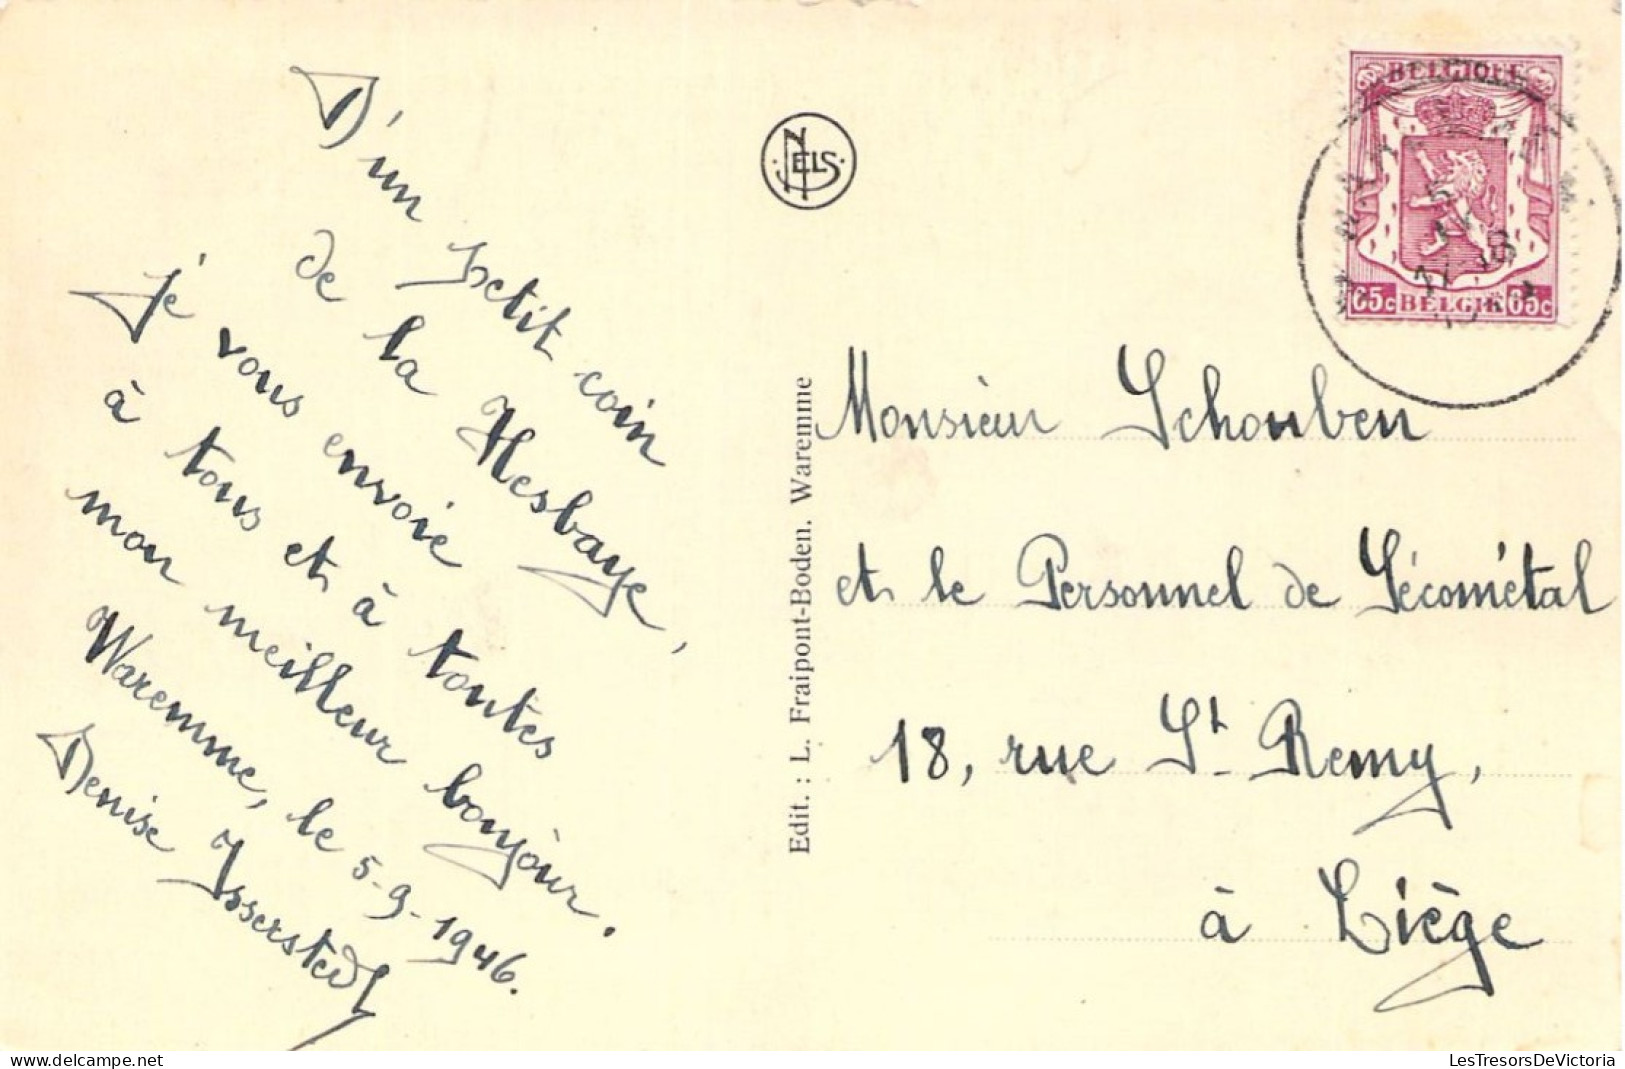 D'un petit coin
de la Hesbaye,
je vous envoie
à tous et à toutes
mon meilleur bonjour.
Waremme, le 5-9-1946.
Denise Issersted
NELS
Edit. : L. Fraipont-Boden. Waremme
BELGIQUE
65c BELGIË 65c
Monsieur Schouben
et le Personnel de Sécométal
18, rue St. Remy,
à Liège
LesTresorsDeVictoria
www.delcampe.net